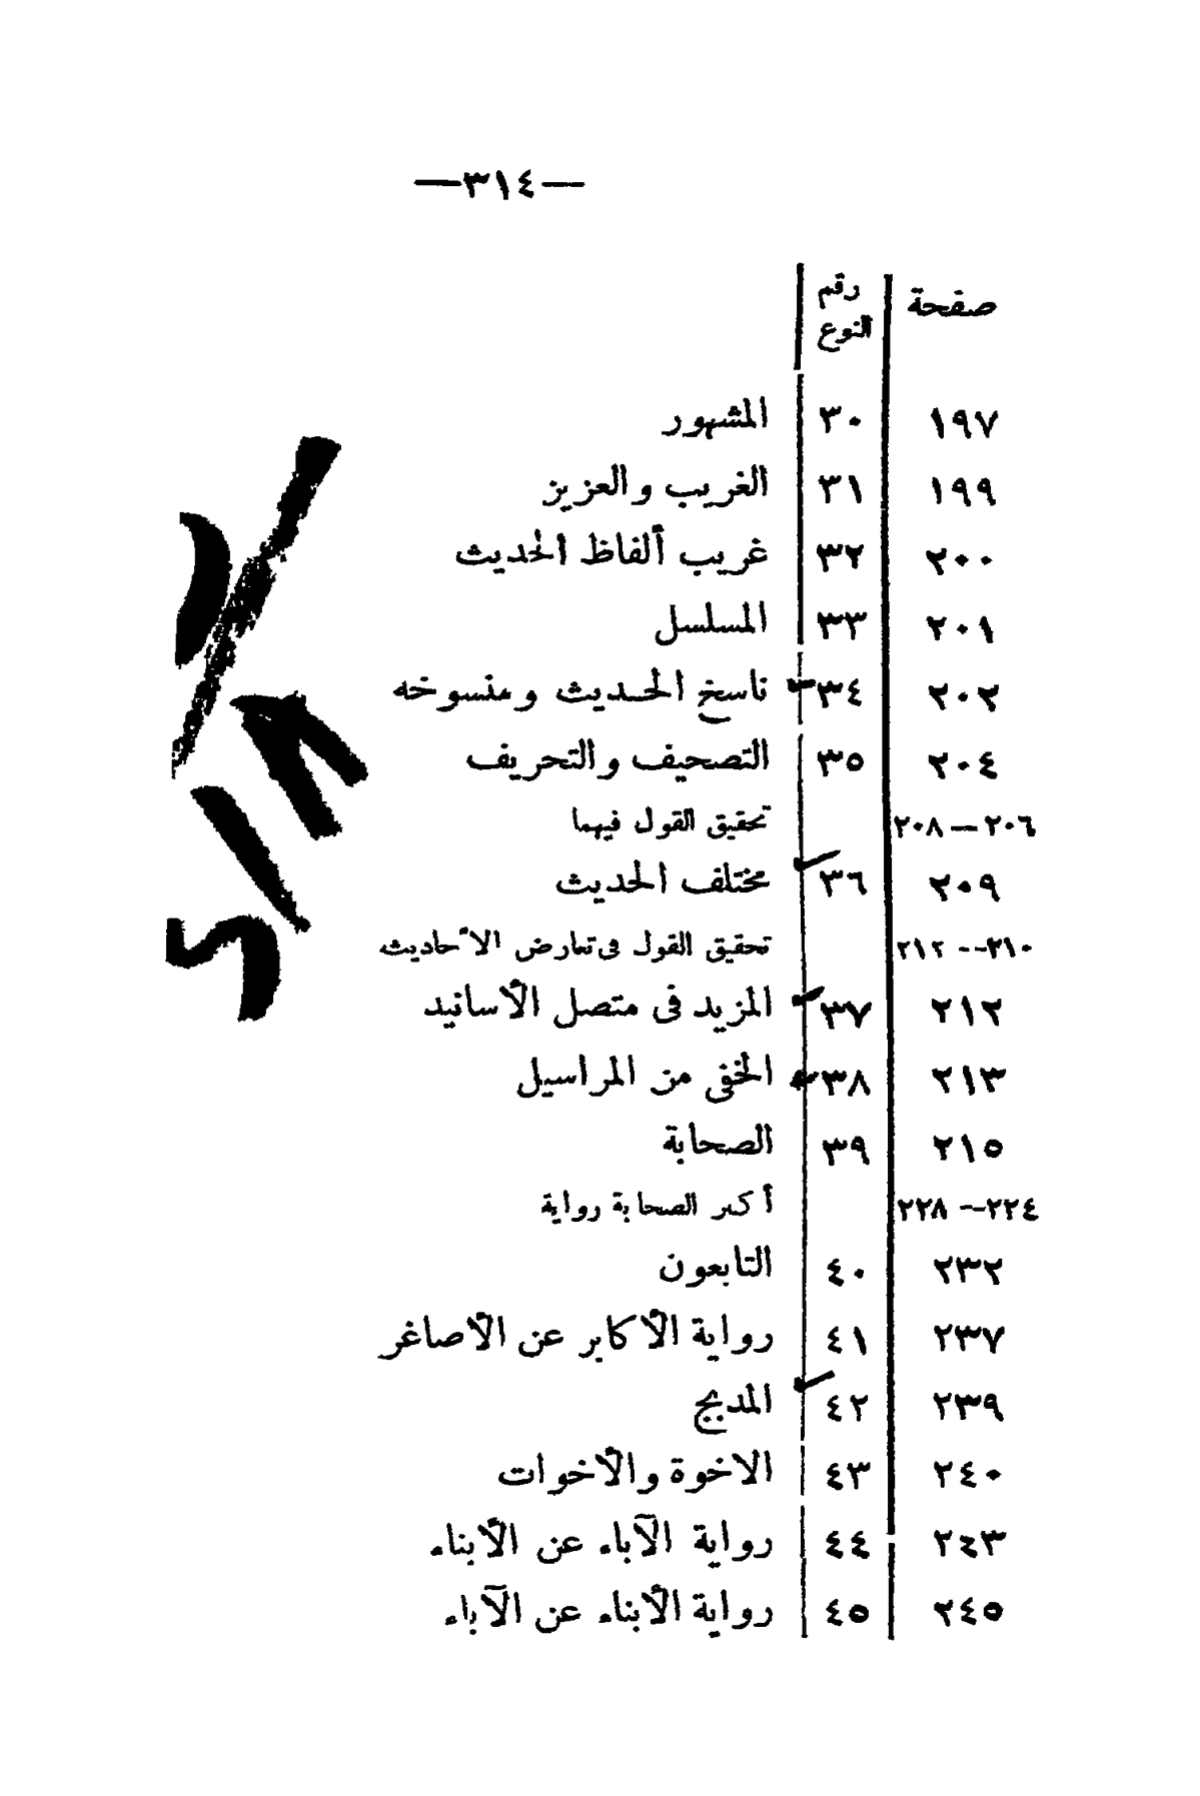 —٣١٤—
صفحة رقم النوع
١٩٧ ٣٠ المشهور
١٩٩ ٣١ الغريب والعزيز
٢٠٠ ٣٢ غريب ألفاظ الحديث
٢٠١ ٣٣ المسلسل
٢٠٢ ٣٤ ناسخ الحديث ومنسوخه
٢٠٤ ٣٥ التصحيف والتحريف
٢٠٦ — ٢٠٨ تحقيق القول فيهما
٢٠٩ ٣٦ مختلف الحديث
٢١٠ -- ٢١٢ تحقيق القول فى تعارض الأحاديث
٢١٢ ٣٧ المزيد فى متصل الأسانيد
٢١٣ ٣٨ الخفى من المراسيل
٢١٥ ٣٩ الصحابة
٢٢٤ -- ٢٢٨ أكثر الصحابة رواية
٢٣٢ ٤٠ التابعون
٢٣٧ ٤١ رواية الأكابر عن الأصاغر
٢٣٩ ٤٢ المدبج
٢٤٠ ٤٣ الاخوة والأخوات
٢٤٣ ٤٤ رواية الآباء عن الأبناء
٢٤٥ ٤٥ رواية الأبناء عن الآباء